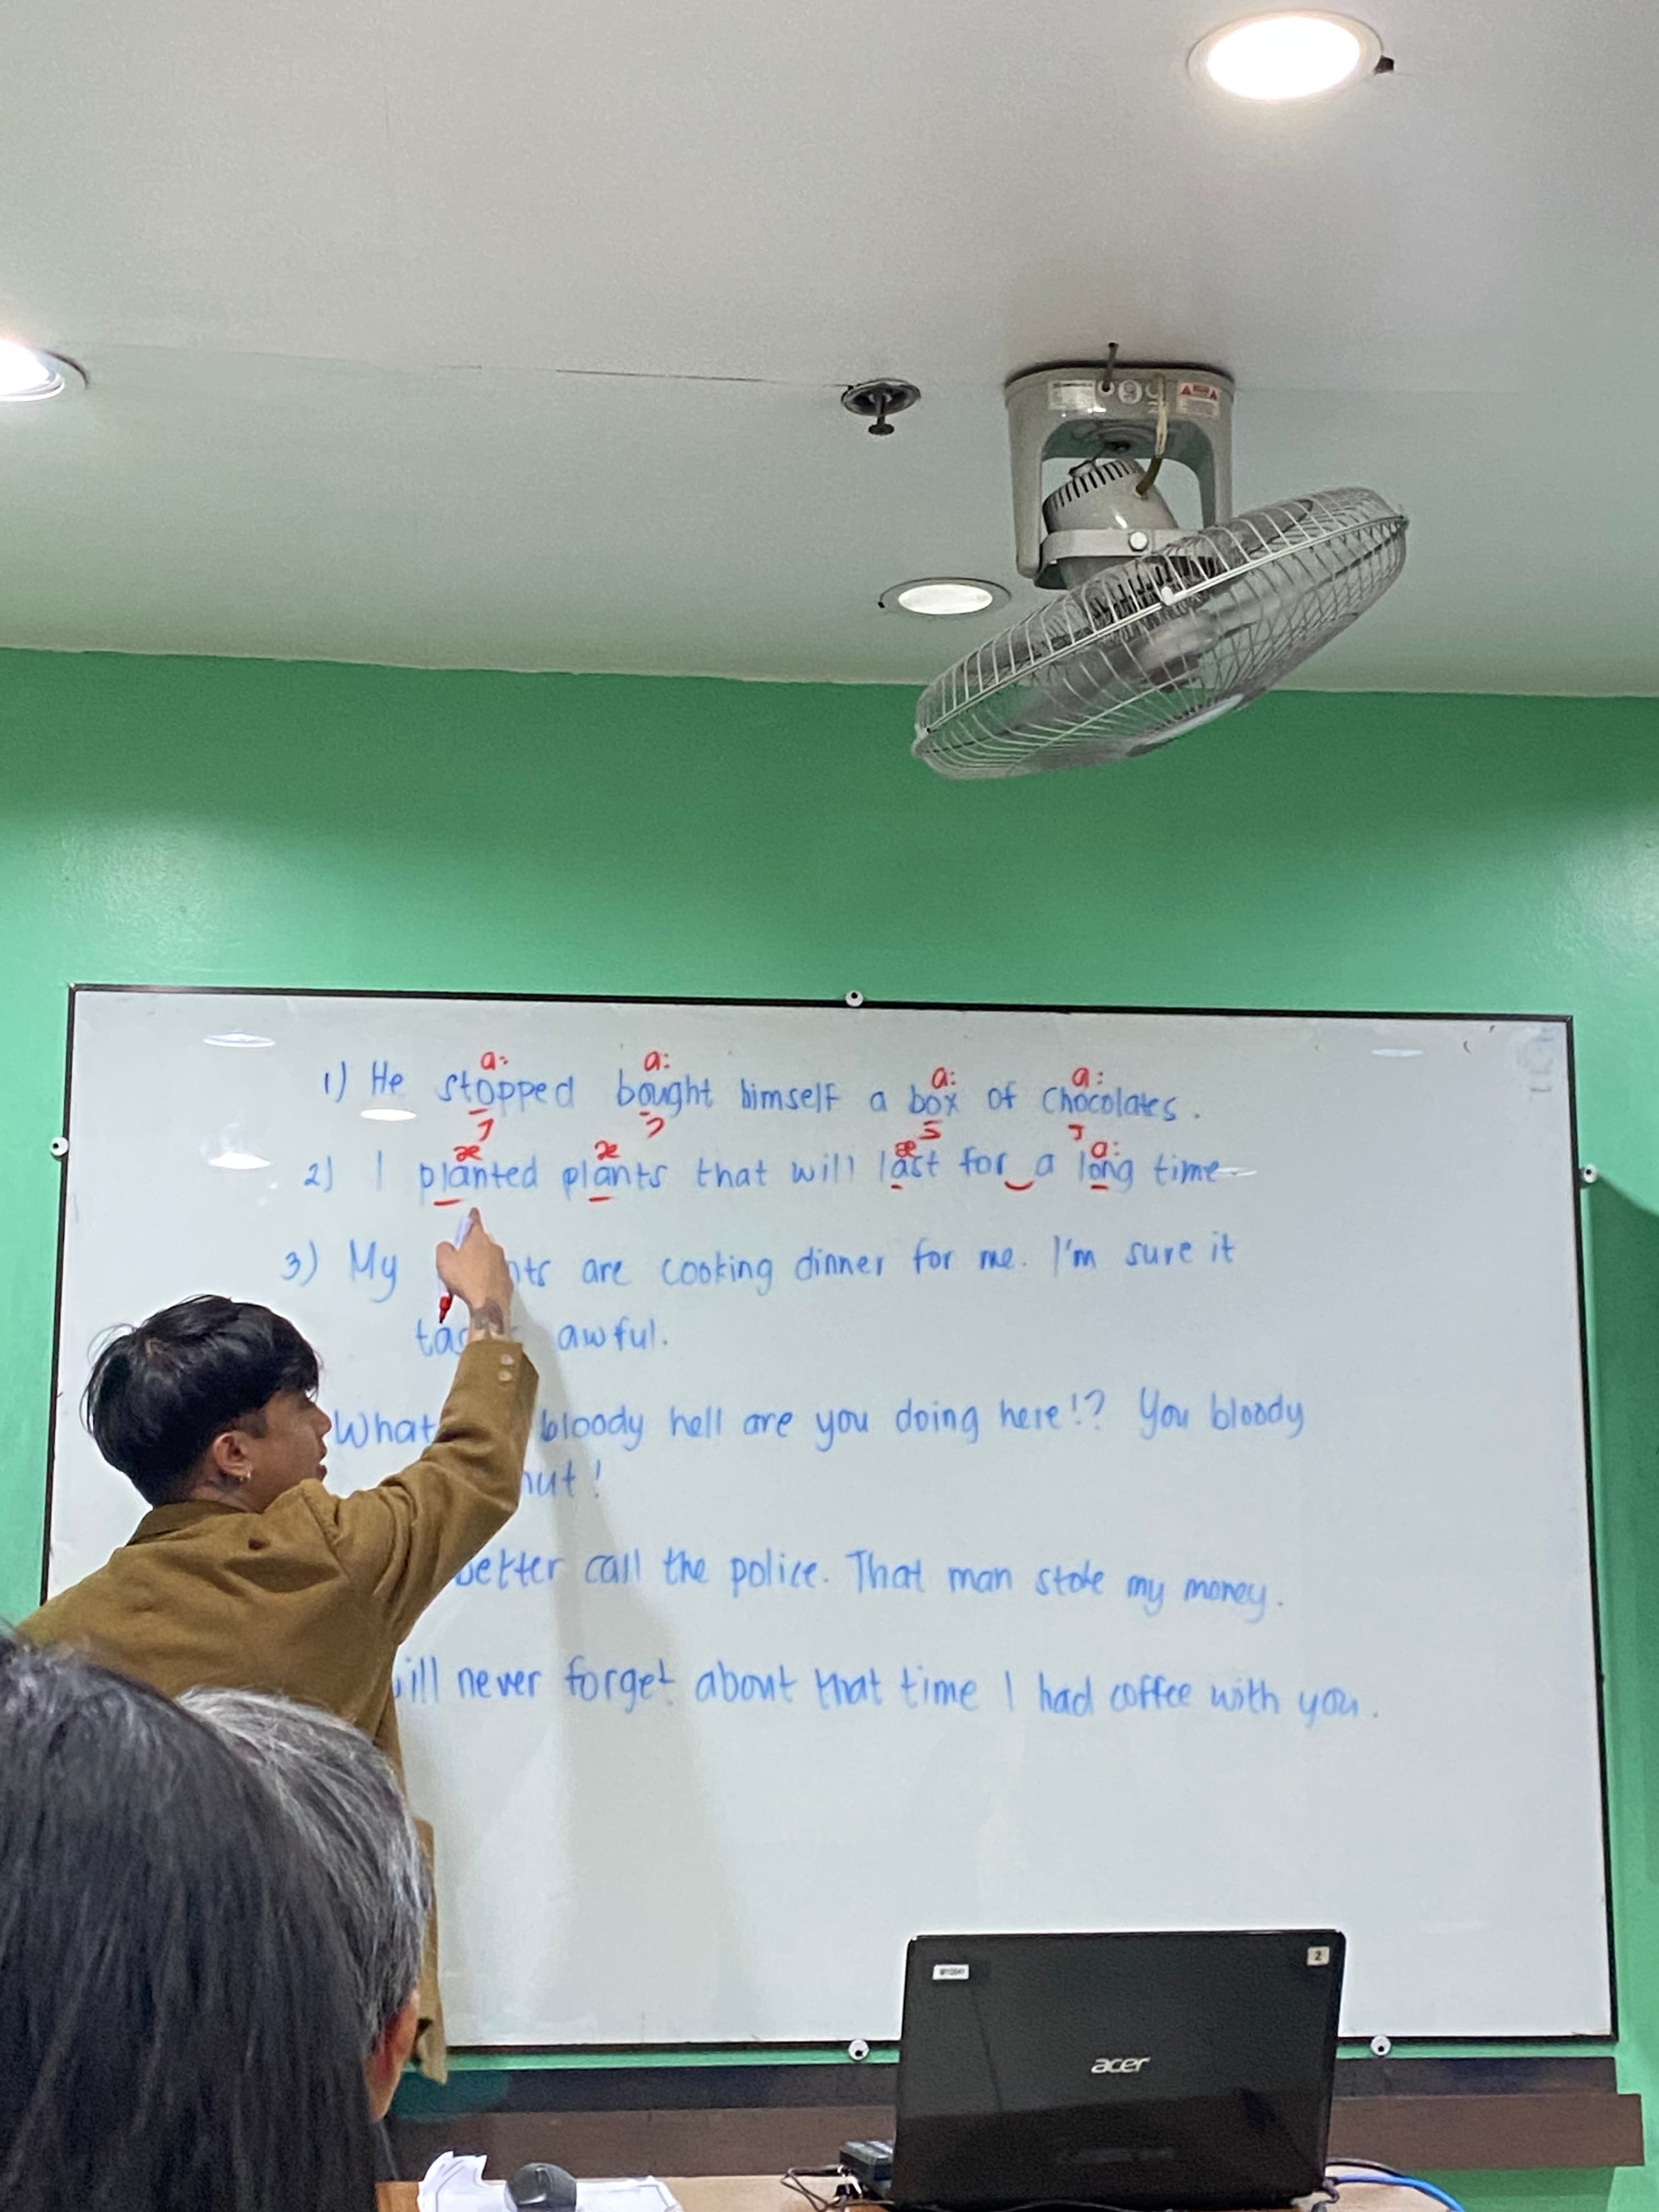 a: a: a: a:
1) He stopped bought himself a box of chocolates.
æ æ æ a:
2) I planted plants that will last for a long time
3) My nts are cooking dinner for me. I'm sure it
awful.
What bloody hell are you doing here!? You bloody
nut!
better call the police. That man stole my money.
ill never forget about that time I had coffee with you.
acer
2